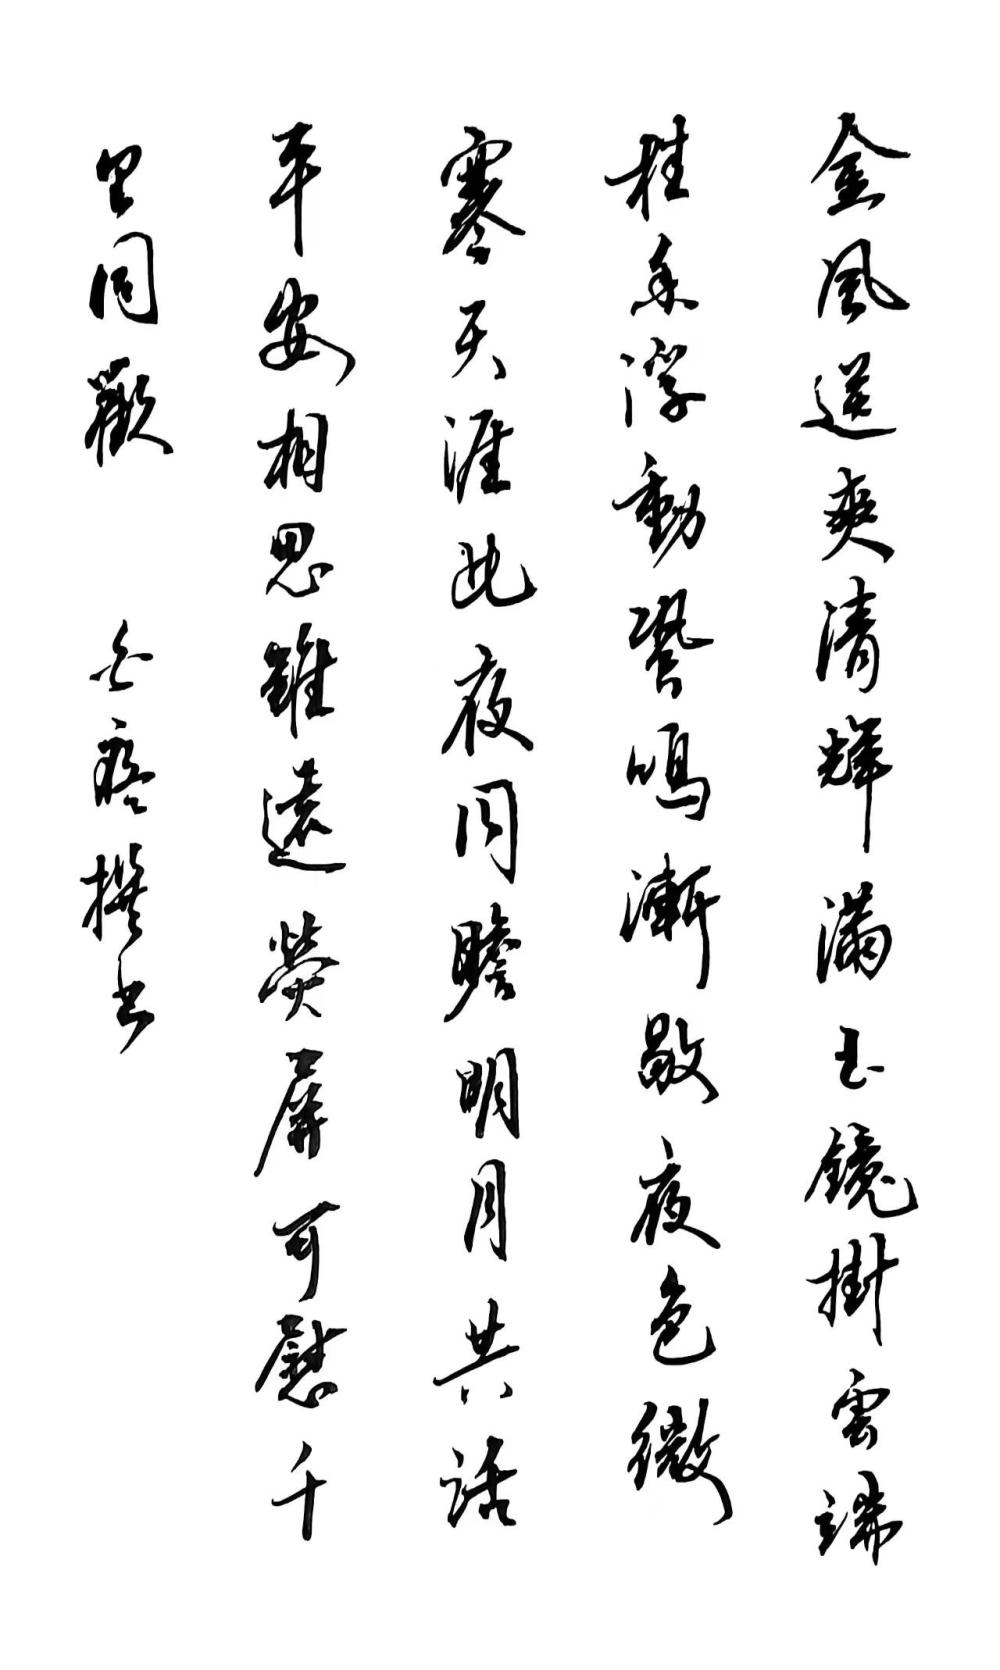 金風送爽清輝滿玉鏡掛雲端
桂香浮動蛩鳴漸歇夜色微
寒天涯此夜同瞻明月共話
平安相思雖遠熒屏可慰千
里同歡 撰書